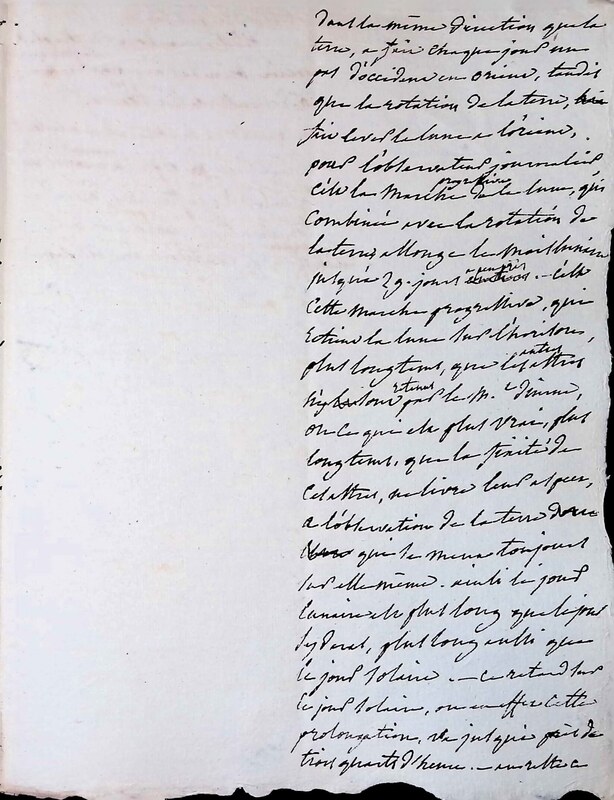 dans la même direction que la
terre, a fair chaque jour un
pas d'occident en orient, tandis
que la rotation de la terre,
fair lever la lune a l'orient,
pour l'observateur journalier,
C'est la marche progressive de la lune, qui
Combinée avec la rotation de
la terre, allonge le mois lunaire
jusqu'à 29. jours a peu près. — C'est
Cette marche progressive, qui
retient la lune sur l'horison,
plus longtems, que les autres astres
retenus par le m.e
ou ce qui est plus vrai, plus
longtems, que la fixité de
Ces astres, ne livre leur aspect,
a l'observation de la terre
qui se meut toujours
sur elle même. ainsi le jour
Lunaire est plus long que le jour
syderal, plus long aussi que
le jour solaire. — Ce retard sur
le jour solaire, ou en effet Cette
prolongation, va jusqu'à près de
trois quarts d'heure. — au reste